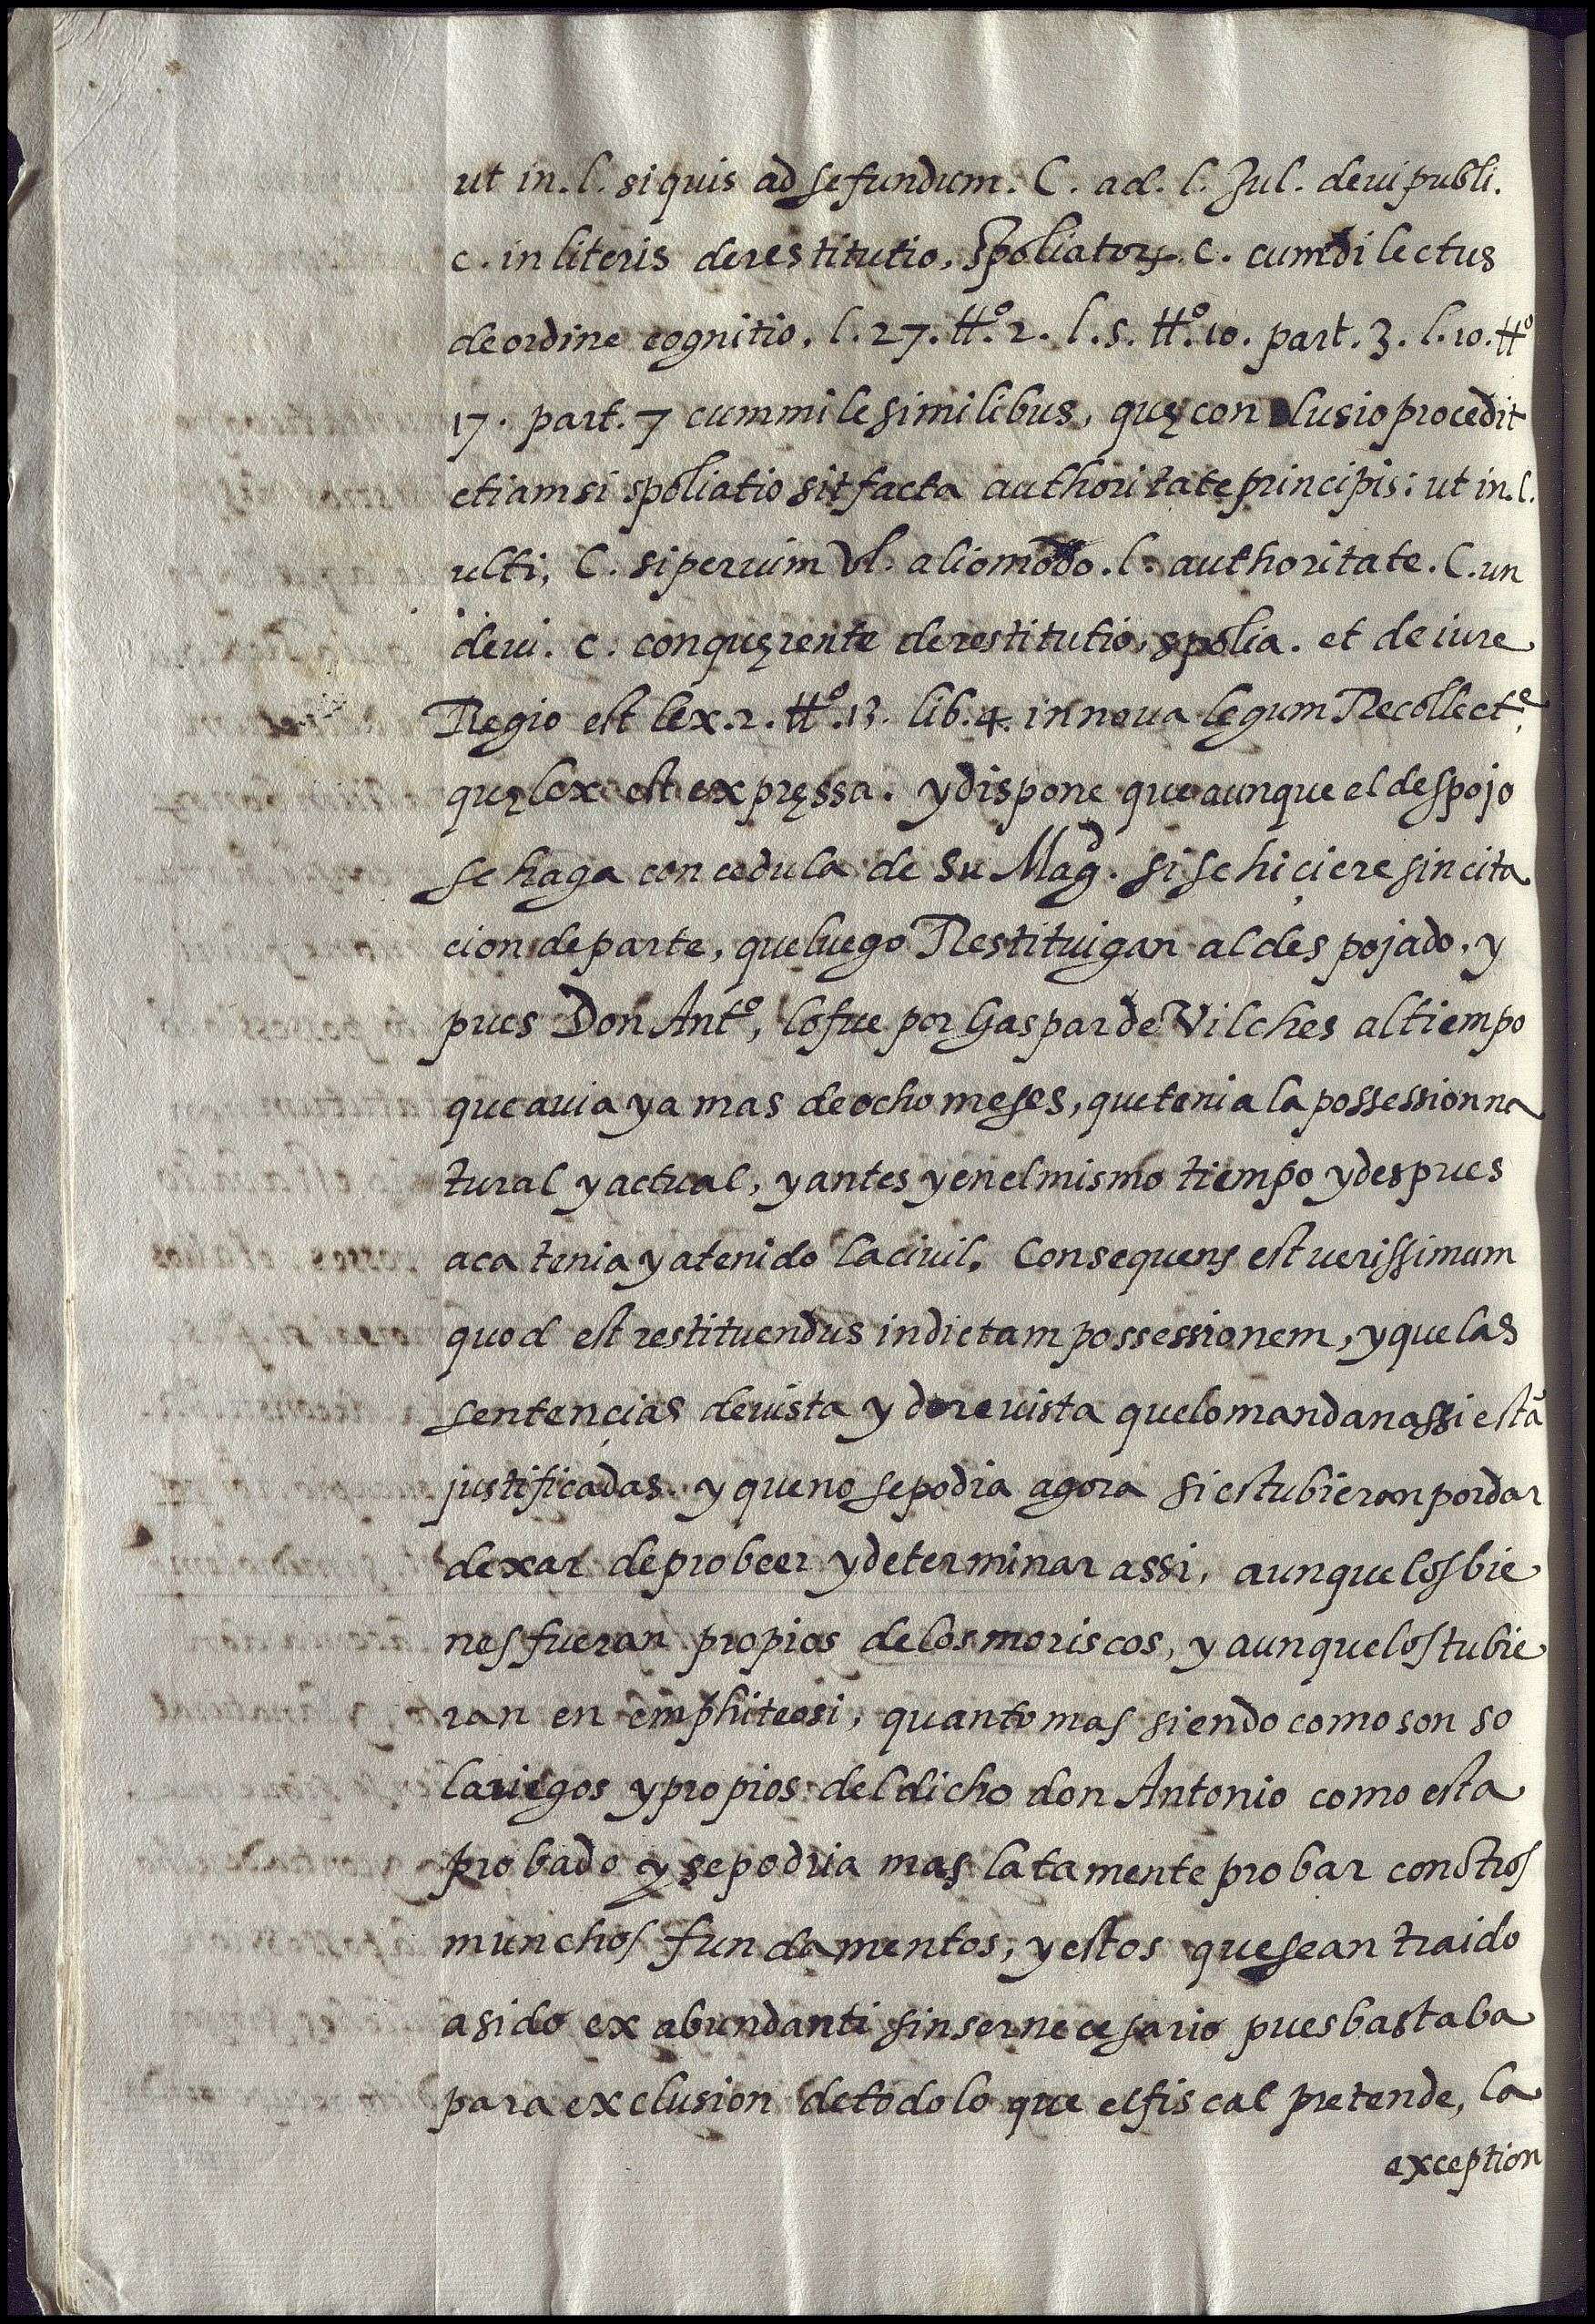 ut in. l. siquis ad se fundum. C. ad. l. Jul. de ui publi.
c. in literis de restitutio, spoliatorꝝ. c. cum dilectus
de ordine cognitio. l. 27. tt.º 2. l. 5. tt.º 10. part. 3. l. 10. tt.º
17. part. 7 cum mile similibus, quę conclusio procedit
etiam si spoliatio sit facta authoritate principis: ut in. l.
ulti, C. si per uim Vl. alio modo. l. authoritate. C. un
de ui. c. conquęrente de restitutio, spolia. et de iure
Regio est lex. 2. tt.º 13. lib. 4. in noua legum Recollect.e
quę lex est expręssa. y dispone que aunque el despojo
se haga con cedula de Su Magd. si se hiçiere sin cita
cion de parte, que luego Restituigan al despojado, y
pues Don Antº, lo fue por Gaspar de Vilches al tiempo
que auia ya mas de ocho meses, que tenia la possession na
tural y actual, y antes y en el mismo tiempo y despues
aca tenia y a tenido la ciuil. Consequens est uerissimum
quod est restituendus in dictam possessionem, y que las
sentençias de uista y de reuista que lo mandan assi estã
justificadas. y que no se podia agora si estubieran por dar
dexar de probeer y determinar assi, aunque los bie
nes fueran propios de los moriscos, y aunque los tubie
ran en emphiteosi, quanto mas siendo como son so
lariegos y propios del dicho don Antonio como esta
probado y se podria mas latamente probar con otros
munchos fundamentos, y estos que se an traido
a sido ex abundanti sin ser necesario pues bastaba
para exclusion de todo lo que el fiscal pretende, la
exception